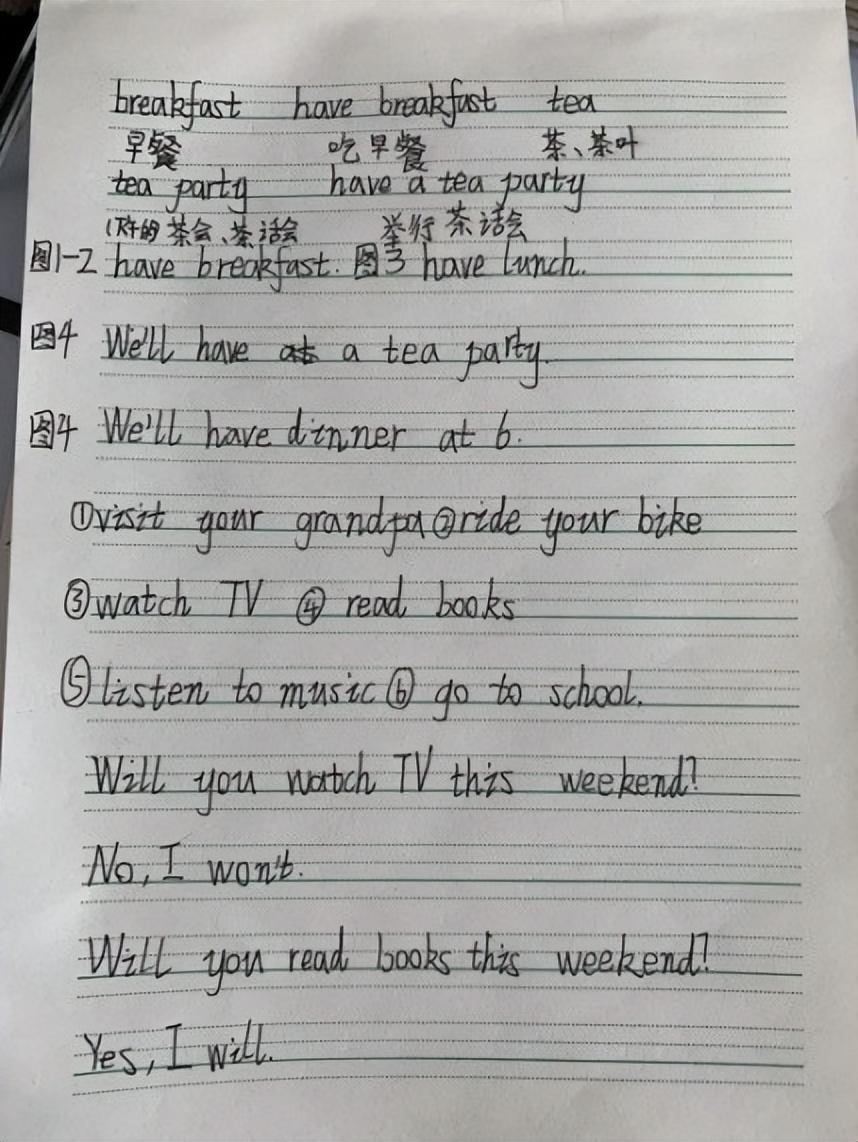 breakfast have breakfast tea
早餐 吃早餐 茶、茶叶
tea party have a tea party
(下午的 茶会、茶话会 举行茶话会
图1-2 have breakfast. 图3 have lunch.
图4 We'll have at a tea party.
图4 We'll have dinner at 6.
①visit your grandpa ②ride your bike
③watch TV ④ read books
⑤listen to music ⑥ go to school.
Will you watch TV this weekend?
No, I won't.
Will you read books this weekend?
Yes, I will.